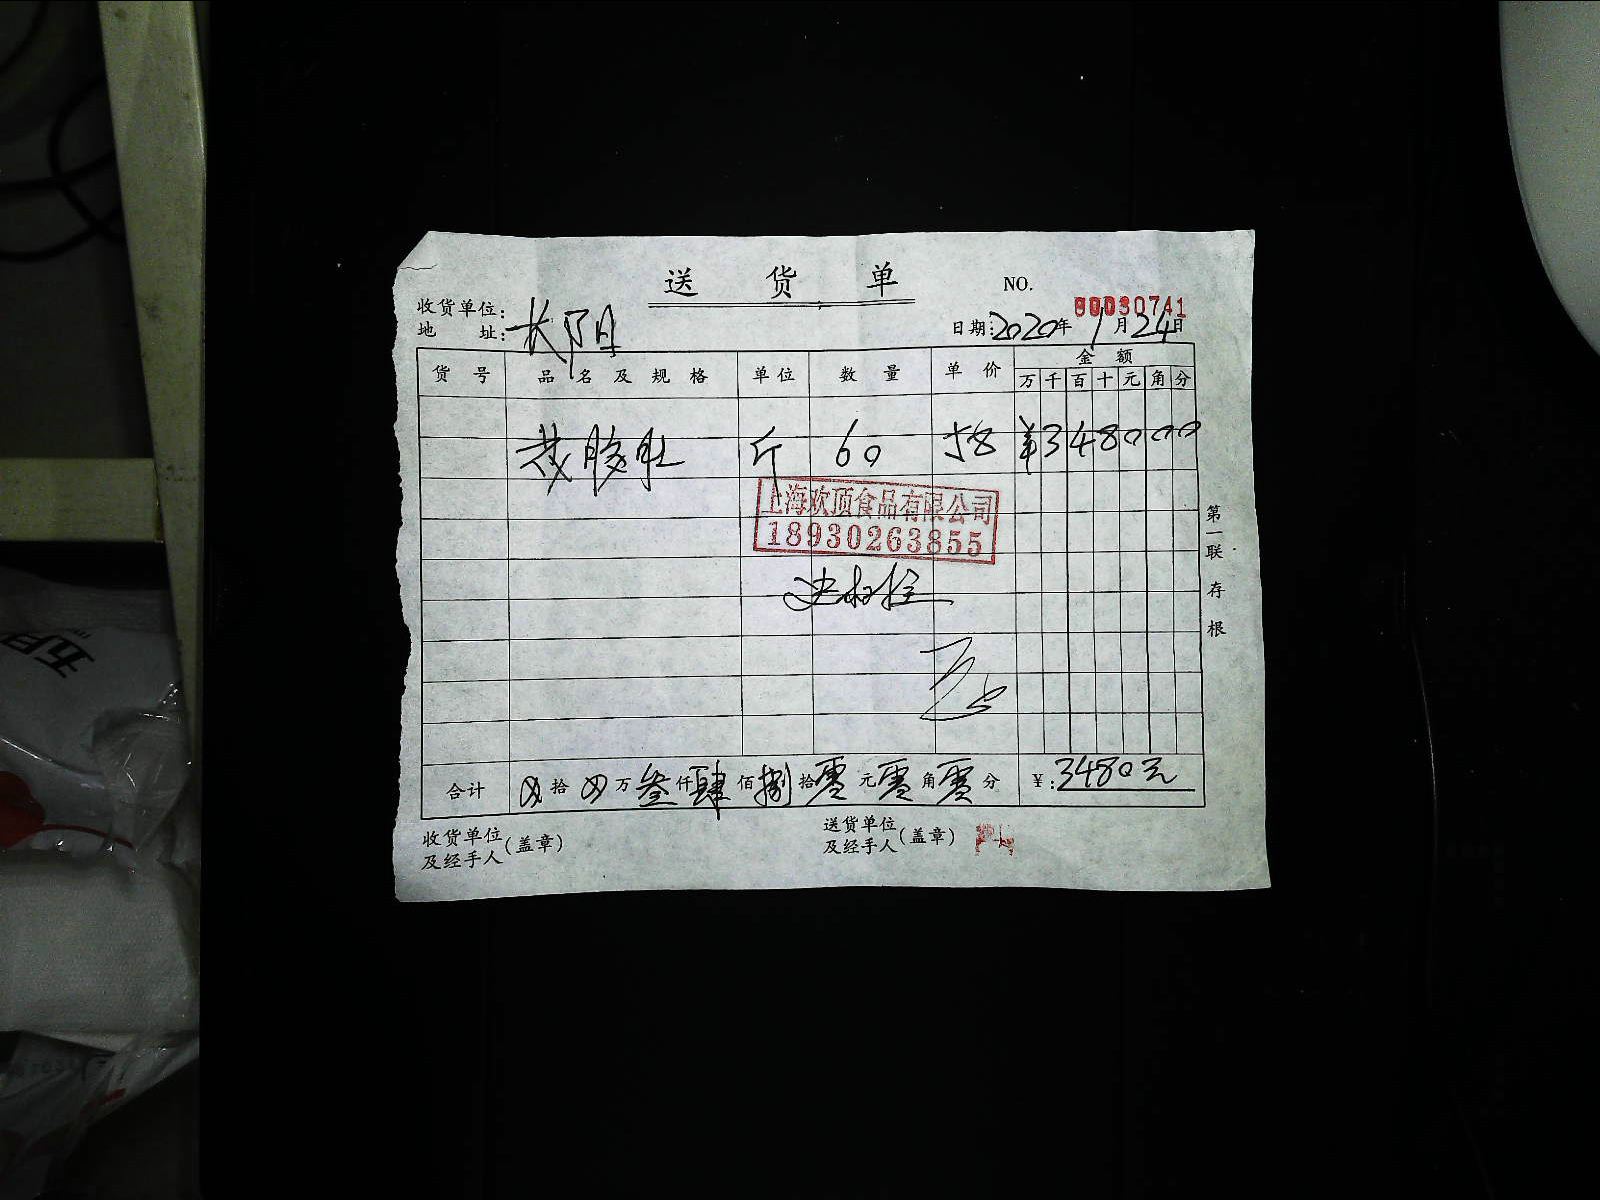 送货单
NO.
00030741
收货单位:
地址: 长阳
日期: 2020年1月24日
货号 品名及规格 单位 数量 单价 金额
万 千 百 十 元 角 分
斤 60 58 ¥348000
上海欧顶食品有限公司
18930263855
合计 拾 万叁仟肆佰捌拾零元零角零分 ¥:3480元
收货单位
及经手人(盖章)
送货单位
及经手人(盖章)
第一联 存根
五月